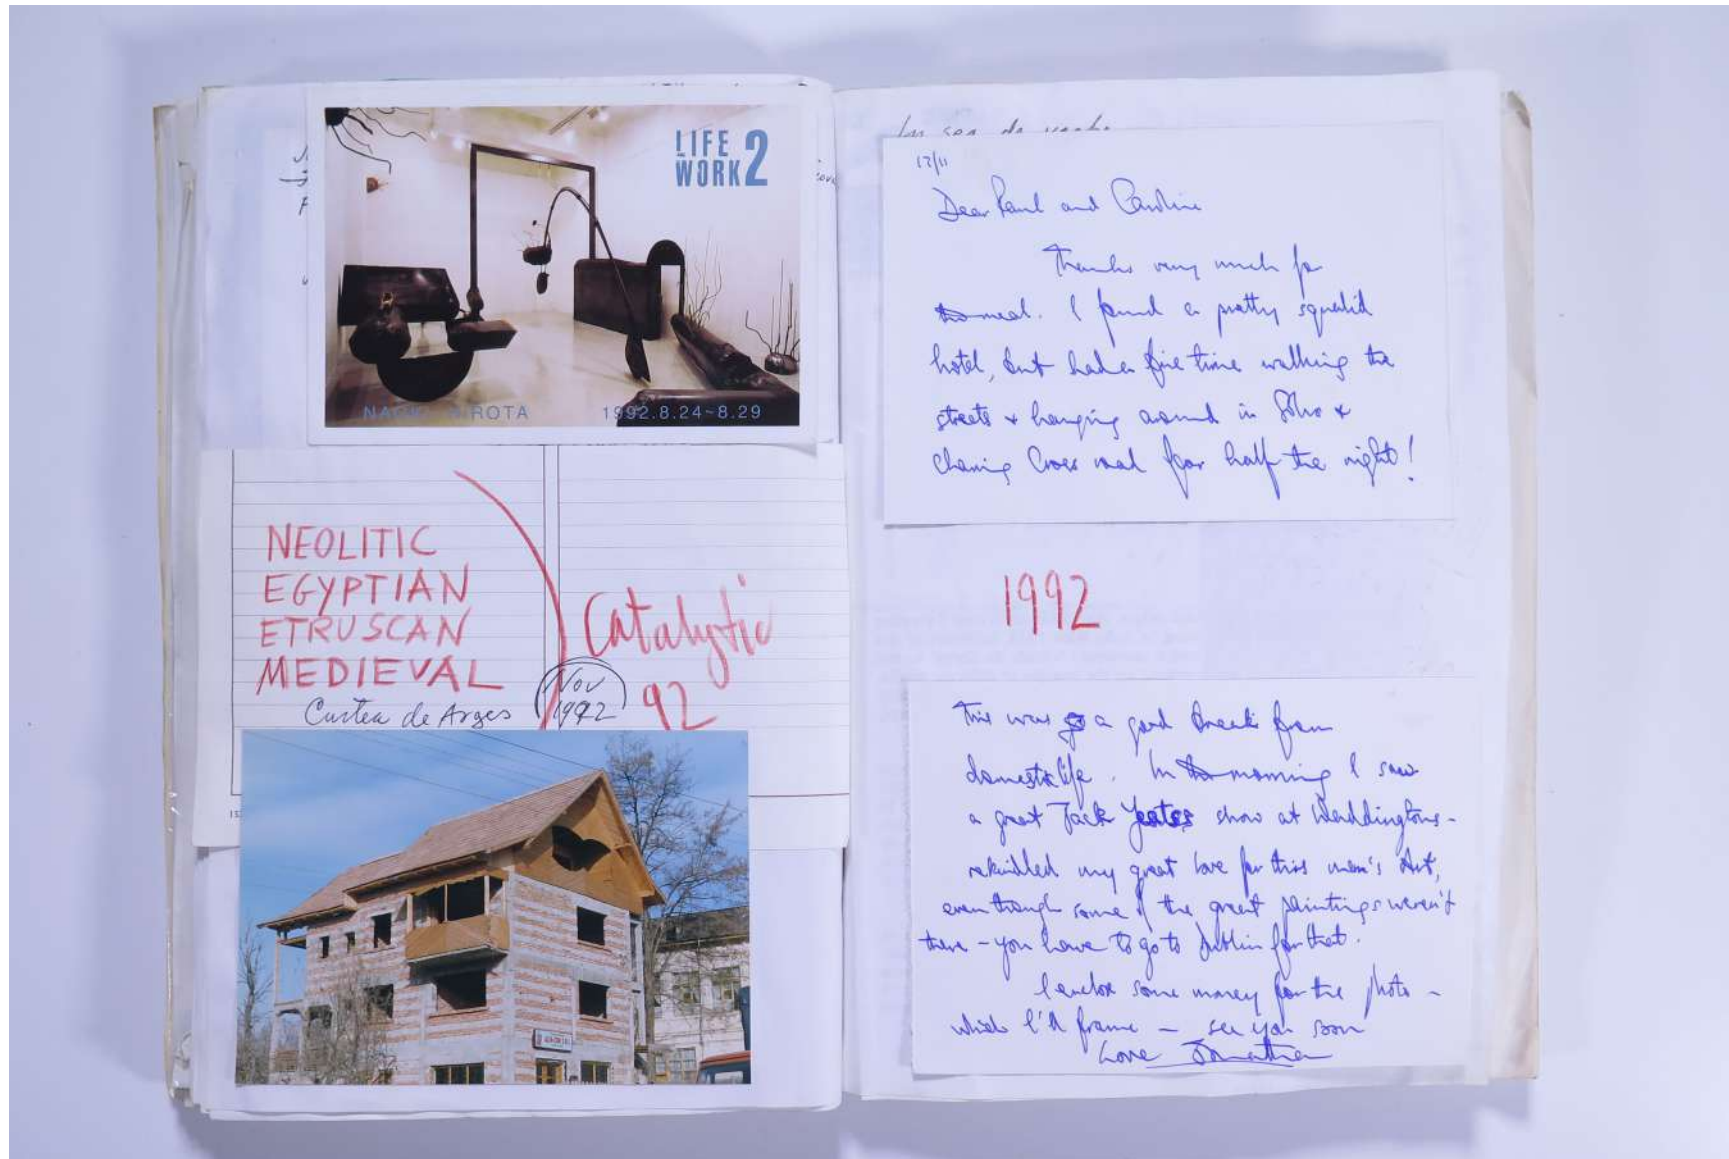 LIFE
WORK 2
ROTA 1992.8.24~8.29
NEOLITIC
EGYPTIAN
ETRUSCAN
MEDIEVAL
Catalytic
92
Curtea de Arges
Nov
1992
17/11
Dear Paul and Caroline
Thanks very much for
the meal. I found a pretty squalid
hotel, but had a fine time walking the
streets & hanging around in Soho &
Charing Cross road for half the night!
1992
This was a good break from
domestic life. In the morning I saw
a great Jack Yeats show at Waddingtons -
rekindled my great love for this man's Art,
even though some of the great paintings weren't
there - you have to go to Dublin for that.
I enclose some money for the photo -
which I'll frame - see you soon
Love Jonathan